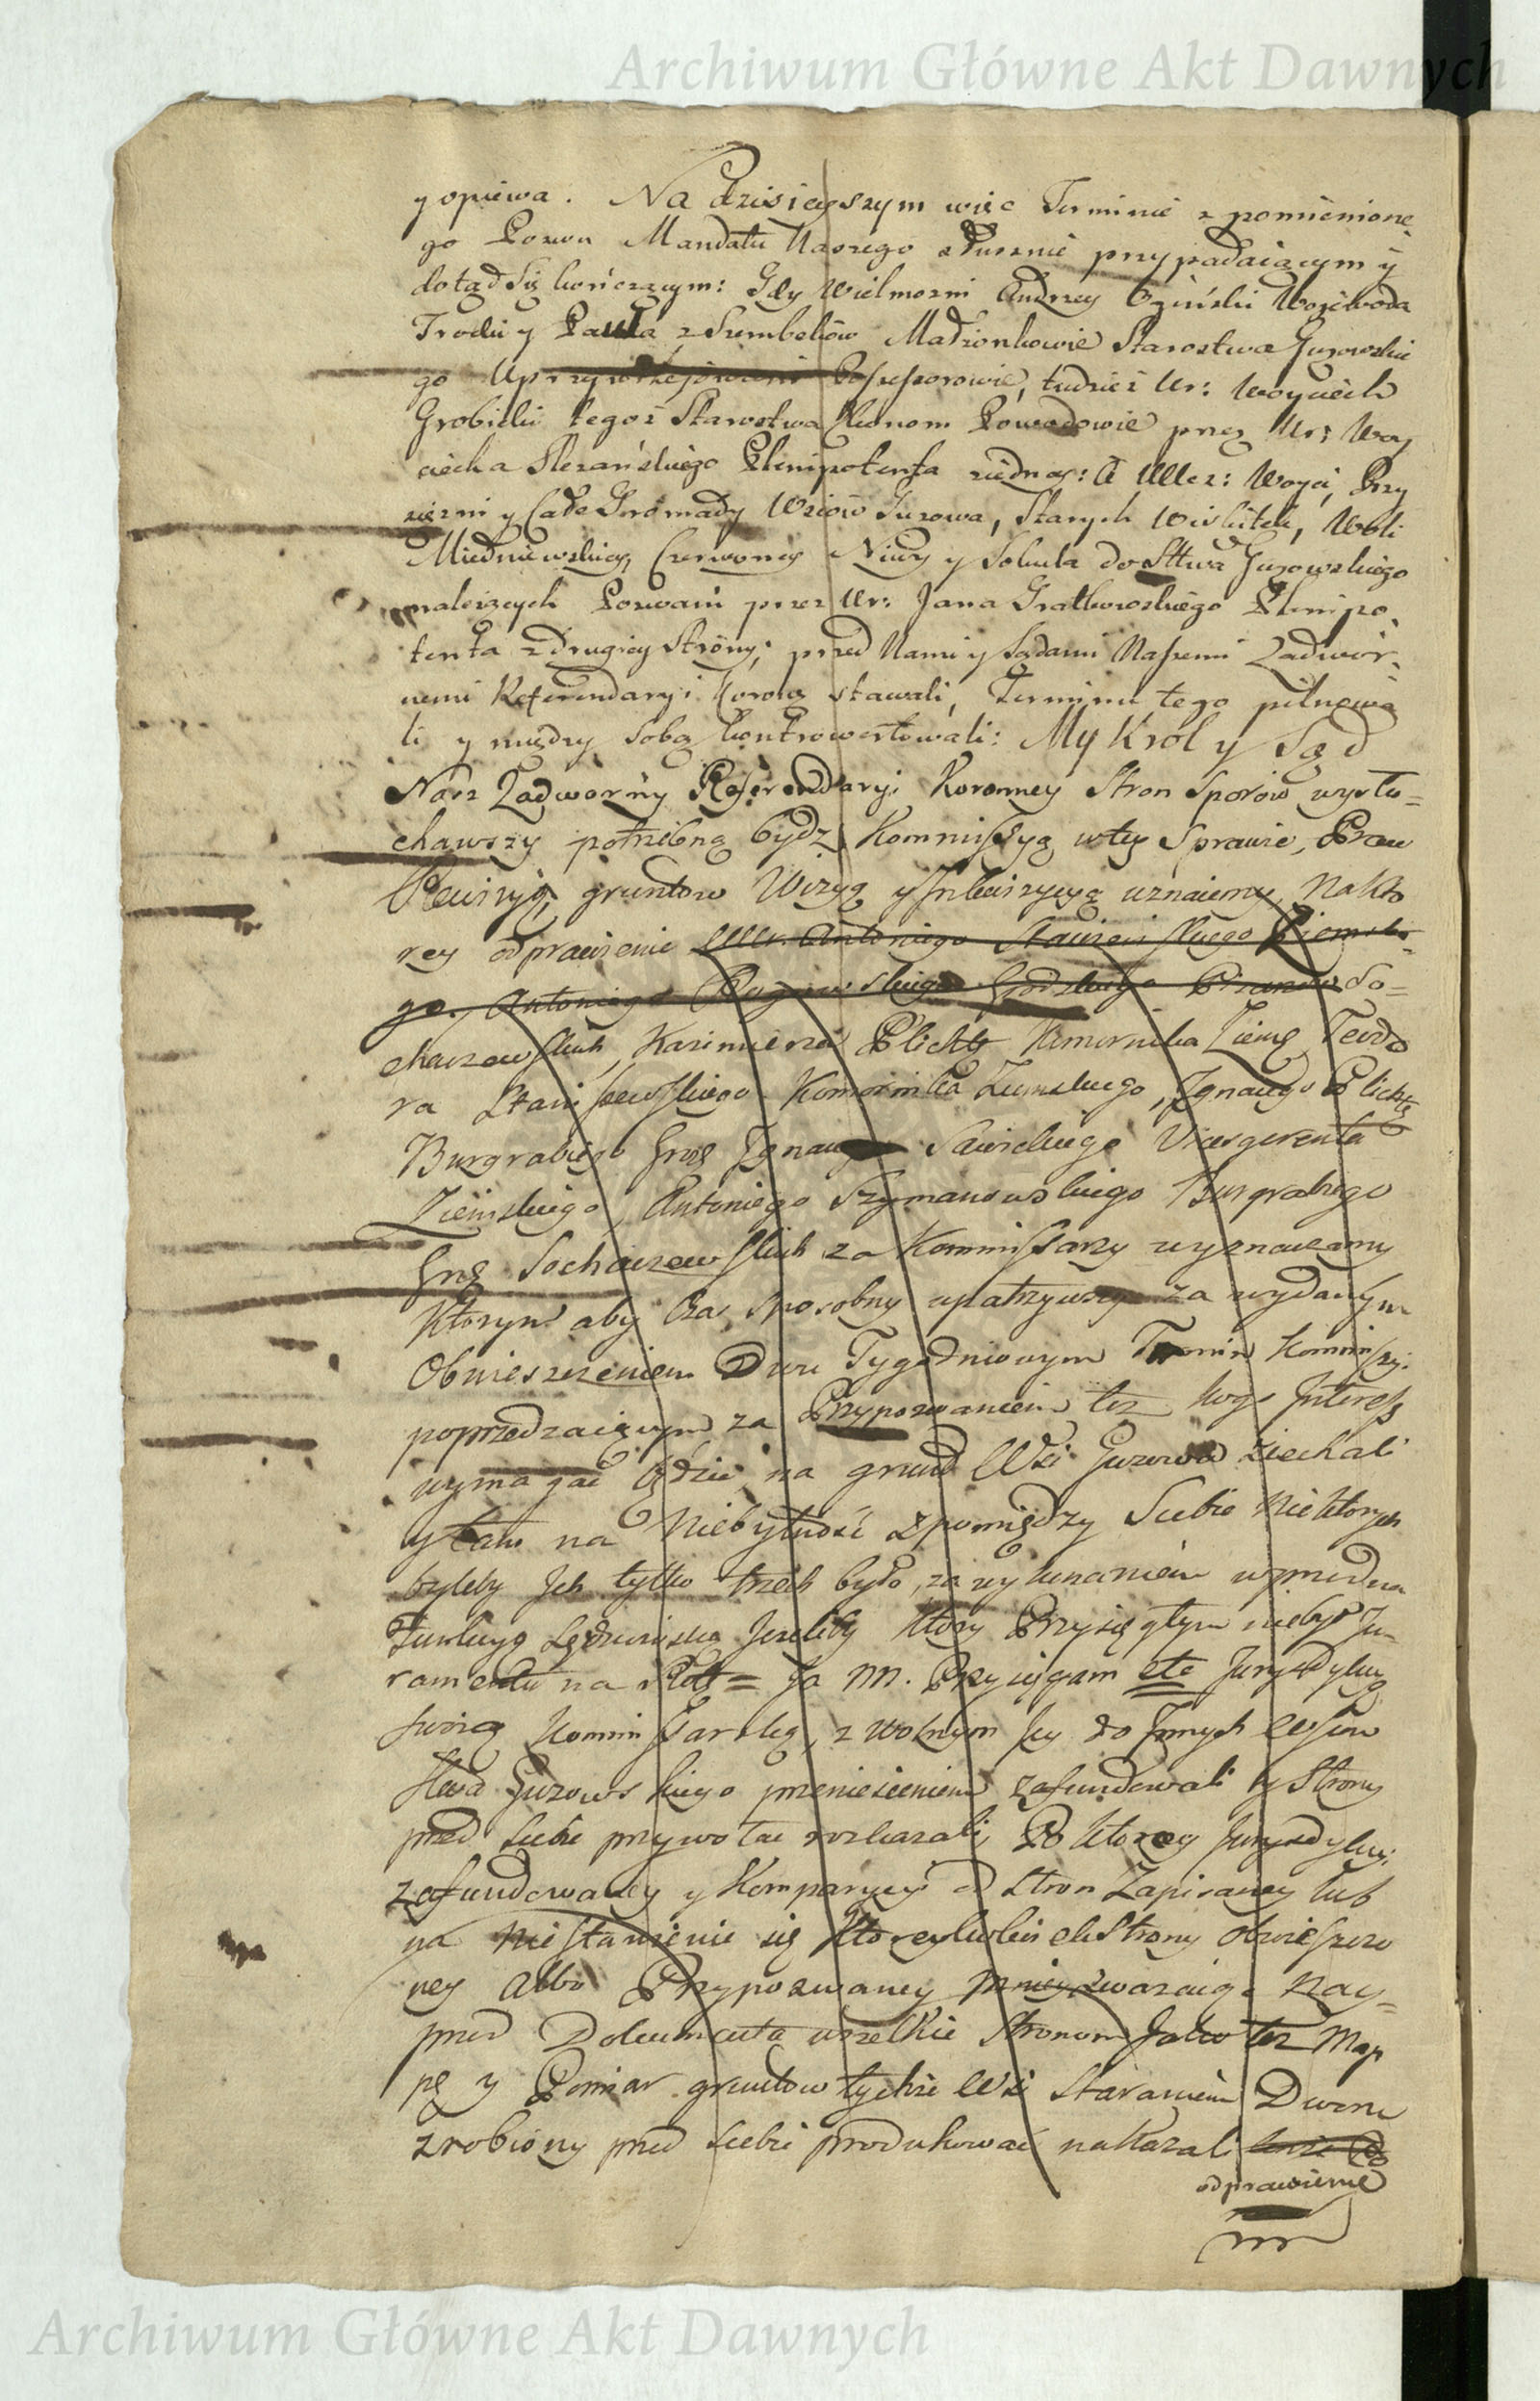 Archiwum Główne Akt Dawnych
y opiewa. Na dzisieyszym więc Terminie z pomienione-
go Pozwu Mandatu Naszego słusznie przypadaiącym y
dotąd się kończącym: Gdy Wielmożni Andrzey Ogiński Woiewoda
Trocki y Paula z Szembeków Małżonkowie Starostwa Guzowskie
go Uprzywileiowani Possessorowie, tudzież Ur: Woyciech
Grobicki tegoż Starostwa Ekonom Powodowie przez Ur: Woy
ciecha Plenipotenta ziedney: A Ucz: Woyci, Przy
siężni y Całe Gromady Wsiów Guzowa, Starych Wiskitek, Woli
Miedniewskiey, Czerwoney Niwy y Sokula do Sttwa Guzowskiego
należących Pozwani przez Ur: Jana Gratkowskiego Plenipo-
tenta z drugiey Strony; przed Nami y Sądami Naszemi Zadwor-
nemi Referendaryi Koroną stawali, Terminu tego pilnowa
li y między sobą kontrowertowali: My Krol y Sąd
Nasz Zadworny Referendaryi Koronney Stron Sporów wysłu=
chawszy potrzebną bydz Kommissyą w tey Sprawie, Praw
Rewizyą, gruntow Wizyą y Inkwizycyą uznaiemy, na kto
rey odprawienie Antoniego Ziemskie
go y Antoniego Grodzkiego Pisarzów So=
chaczewskich, Kazimierza Plichtę Komornika Ziemę Teodo
ra Staniszewskiego Komornika Ziemskiego, Ignacego Plichtę
Burgrabiego Grdę Ignacego Sawickiego Vicesgerenta
Ziemskiego, Antoniego Szymanowskiego Burgrabiego
Grdę Sochaczewskich za Kommissarzy wyznaczamy
Którym aby Czas sposobny upatrzywszy za wydanym
Obwieszczeniem Dwu Tygodniowym Termin Kommissyi
poprzedzaiącym za Przypozwaniem też kogo Interess
wymagać będzie na grunt Wsi Guzowa ziechali
y tam na Niebytność zpomiędzy Siebie niektorych
byleby Ich tylko trzech było, za wykonaniem wprzod na
Funkcyą Sędziowską Jeżeliby Który Przysięgłym niebył Ju-
ramentu na Rotę = Ja N. Przysięgam etc Jurysdykcyą
swoią Kommissarską, z wolnym Jey do Innych Wsiow
Sttwa Guzowskiego przeniesieniem zafundowali y Strony
przed siebie przywołać rozkazali, Po ktorey Jurysdykcyi
zafundowaney y Komparycyi od Stron Zapisaney lub
na niestawienie się Ktoreykolwiek Strony obwieszczo
ney albo Przypozwaney mniey zważaiąc Nay=
przod Dokumenta wszelkie Stronom Jako też Map
pę y Pomiar gruntow tychże Wsi Staraniem Dworu
zrobiony przed siebie produkować nakazali
odprawienie
Archiwum Główne Akt Dawnych